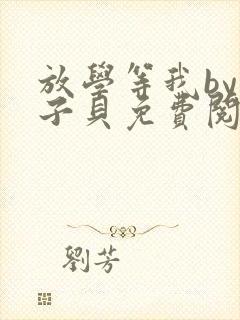 放學等我by
子貝免費閱
劉芳